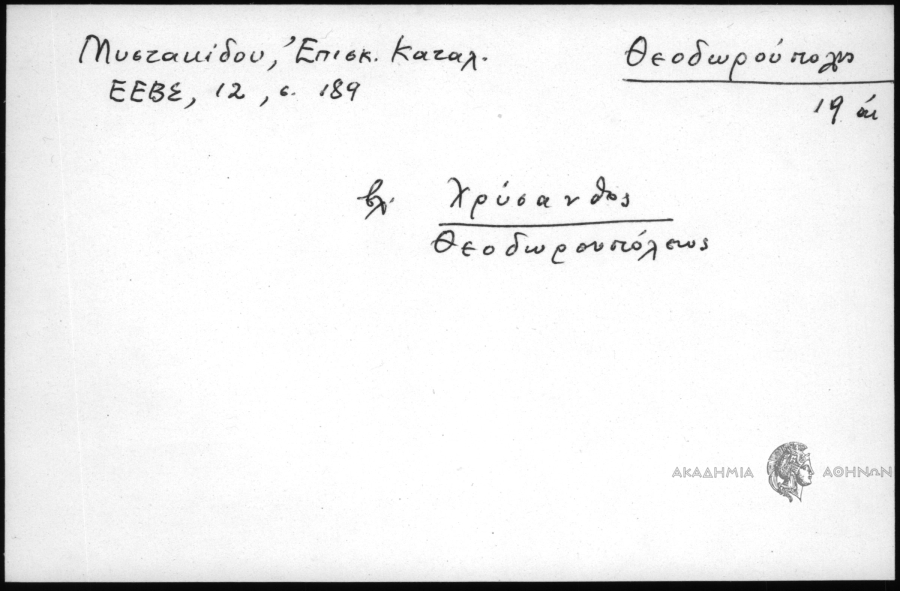 Μυστακίδου, Ἐπισκ. Καταλ.
ΕΕΒΣ, 12, σ. 189
Θεοδωρούπολις
19 αἰ
βλ. Χρύσανθος
Θεοδωρουπόλεως
ΑΚΑΔΗΜΙΑ ΑΘΗΝΩΝ